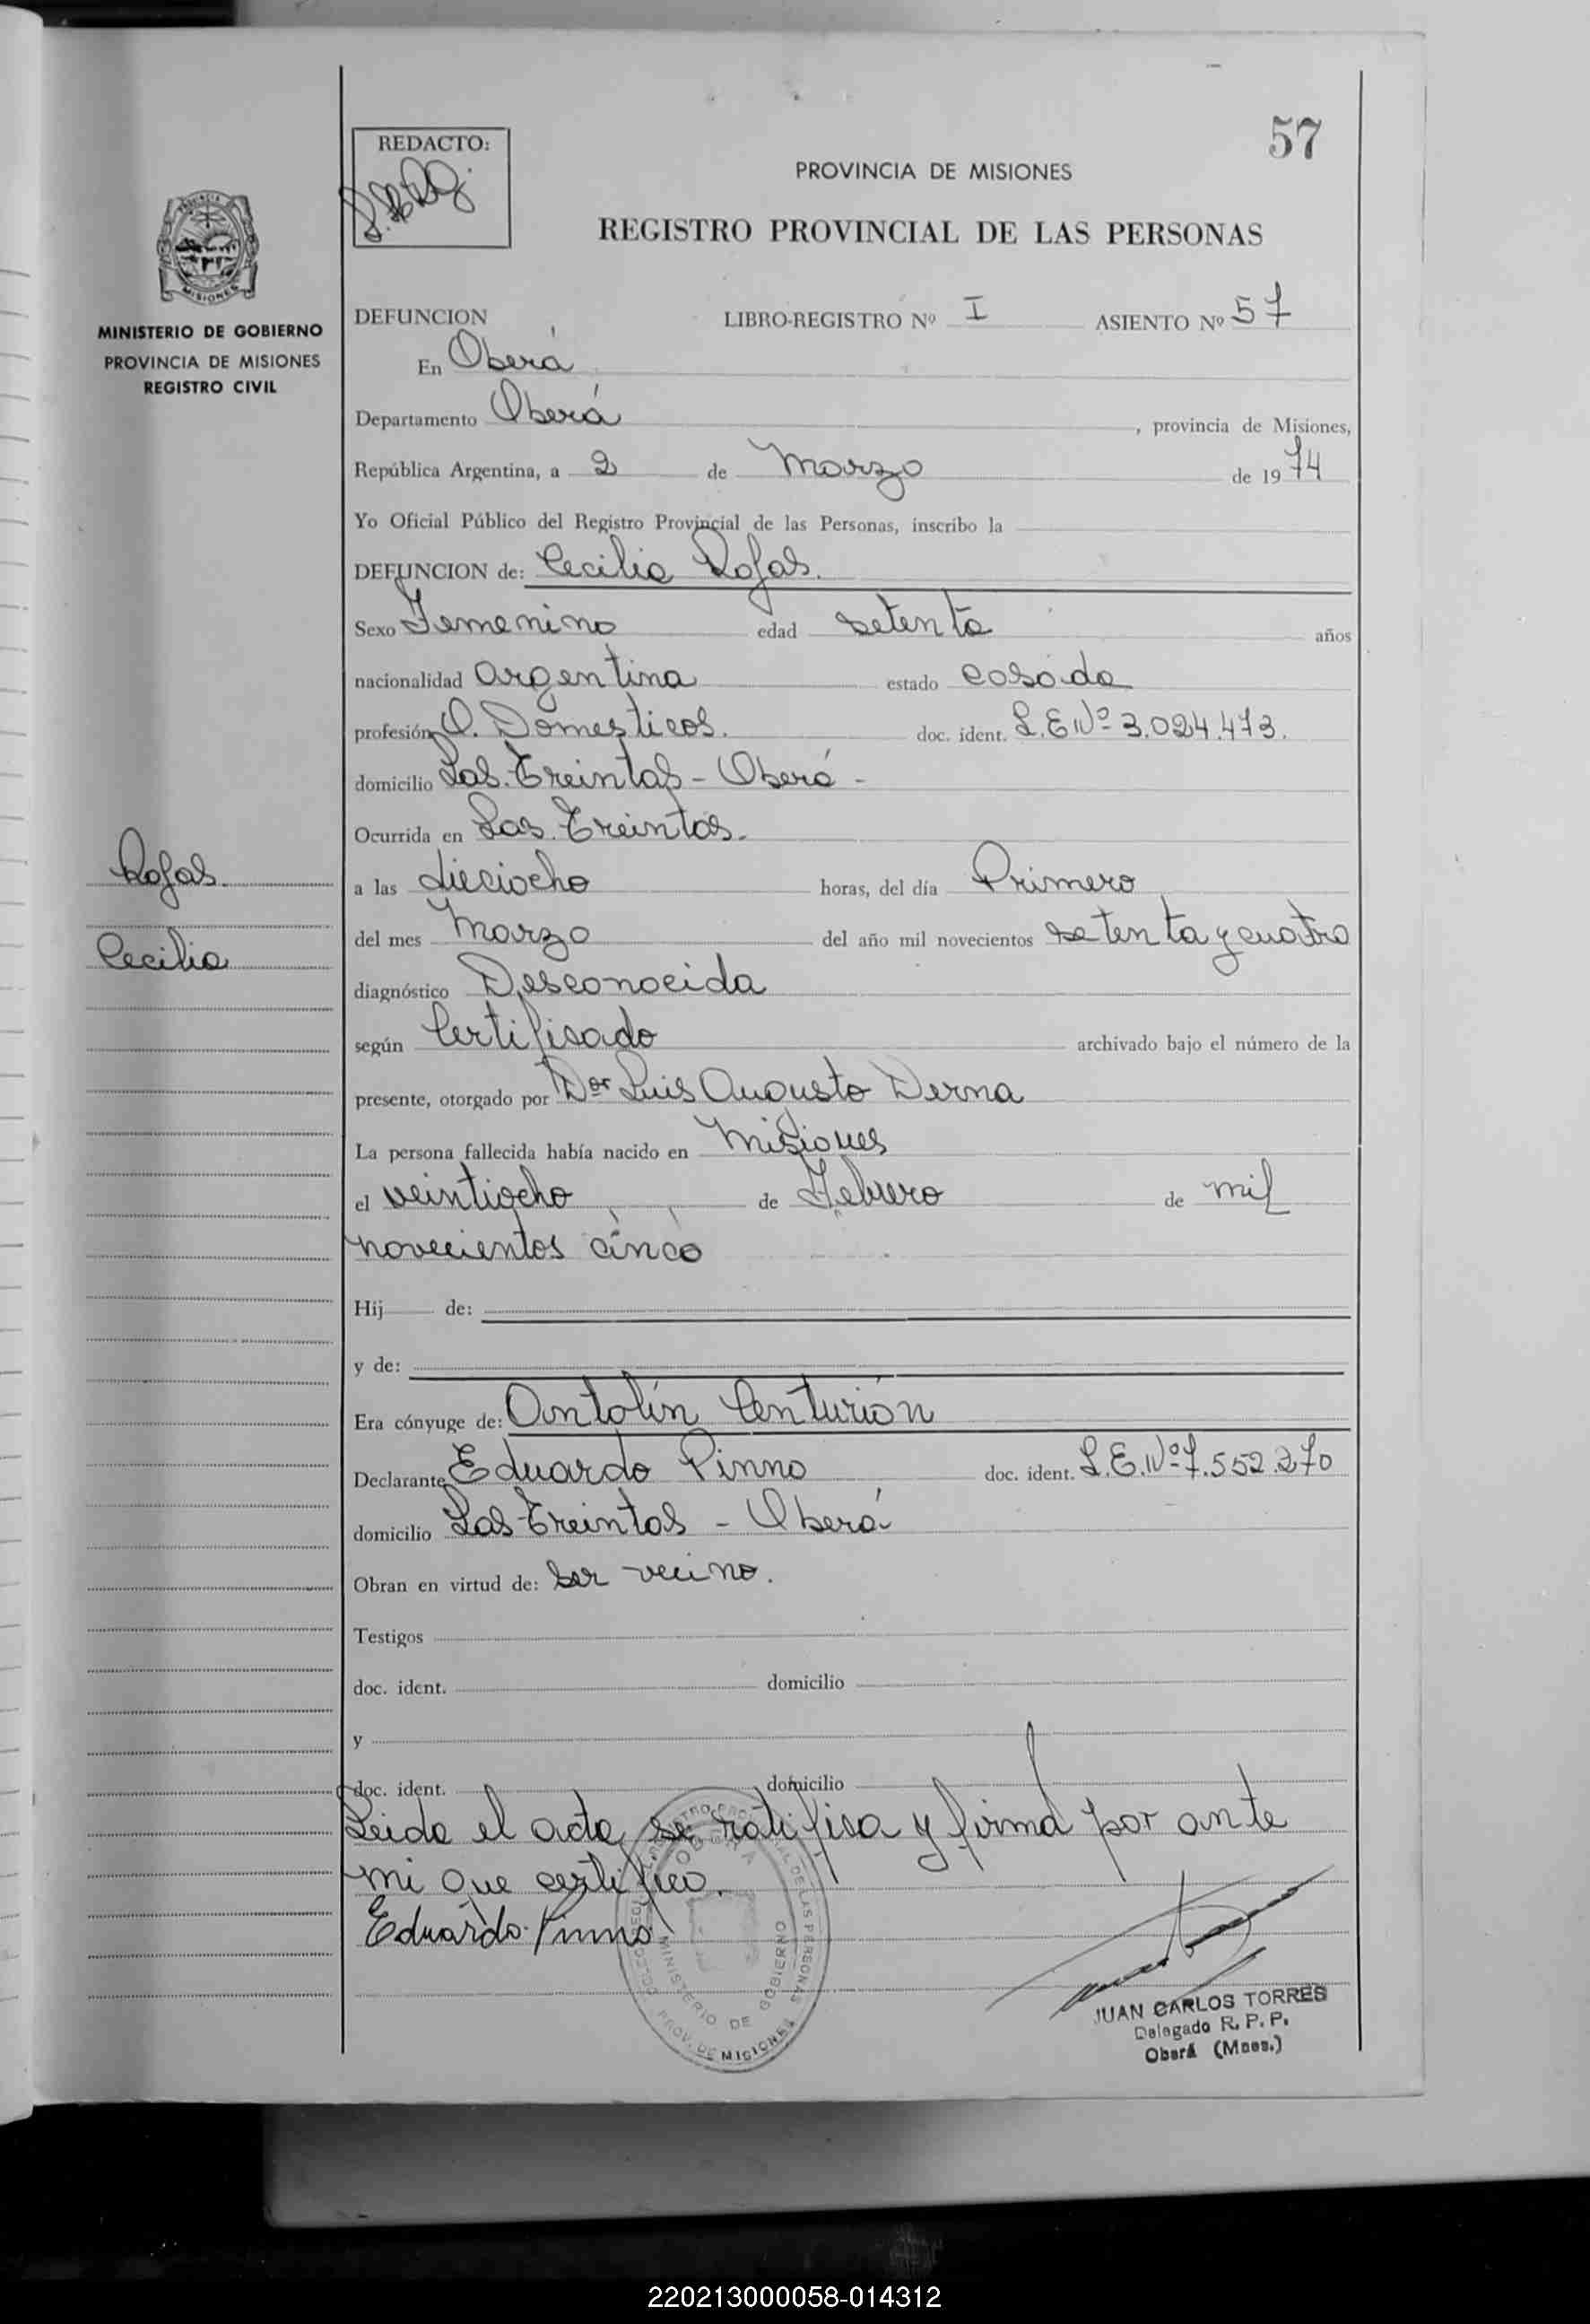 57
REDACTO:
PROVINCIA DE MISIONES
REGISTRO PROVINCIAL DE LAS PERSONAS
MISIONES
MINISTERIO DE GOBIERNO
PROVINCIA DE MISIONES
REGISTRO CIVIL
DEFUNCION LIBRO-REGISTRO Nº I ASIENTO Nº 57
En Oberá
Departamento Oberá, provincia de Misiones,
República Argentina, a 2 de Marzo de 1974
Yo Oficial Público del Registro Provincial de las Personas, inscribo la
DEFUNCION de: Cecilia Rojas.
Sexo Femenino edad setenta años
nacionalidad argentina estado casada
profesión Q. Domesticos. doc. ident. L.E Nº 3.024.473.
domicilio Las Treintas - Oberá -
Ocurrida en Las Treintas.
Rojas.
a las dieciocho horas, del día Primero
Cecilia
del mes Marzo del año mil novecientos setenta y cuatro
diagnóstico Desconocida
según Certifisado archivado bajo el número de la
presente, otorgado por Dor Luis Augusto Derna
La persona fallecida había nacido en Misiones
el veintiocho de Febrero de mil
novecientos cinco
Hij de:
y de:
Era cónyuge de: Antolín Centurión
Declarante Eduardo Pinno doc. ident. L.E. Nº 7.552.270
domicilio Las Treintas - Oberá
Obran en virtud de: ser vecino.
Testigos
doc. ident. domicilio
y
doc. ident. domicilio
Leida el acta, se ratifisa y firma por ante
mi que certifico.
Eduardo Pinno
MINISTERIO DE GOBIERNO
PROV. DE MISIONES
JUAN CARLOS TORRES
Delegado R. P. P.
Oberá (Mnes.)
220213000058-014312